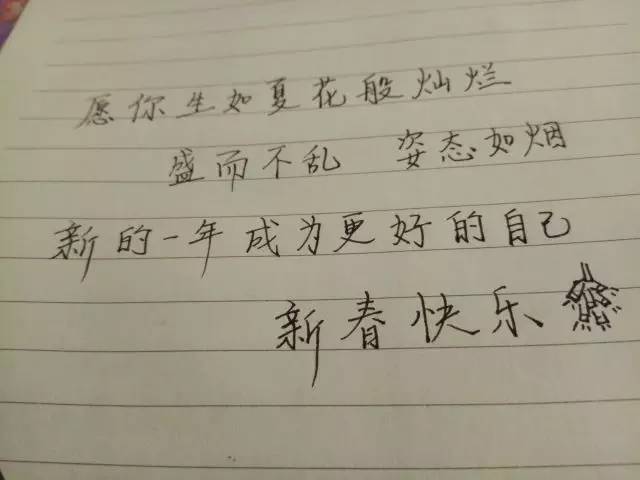 愿你生如夏花般灿烂
盛而不乱 姿态如烟
新的一年成为更好的自己
新春快乐